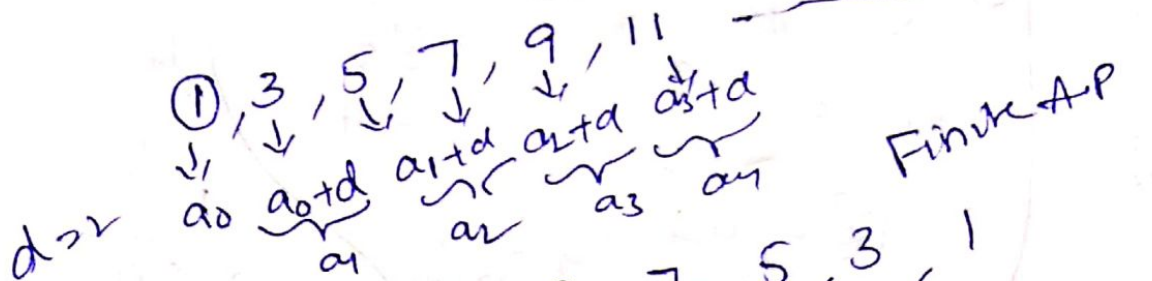 1, 3, 5, 7, 9, 11 -
↓ ↓ ↓ ↓ ↓ ↓
a0 a0+d a1+d a2+d a3+d
a1 a2 a3 a4
d=2
Finite A.P
7 5, 3, 1